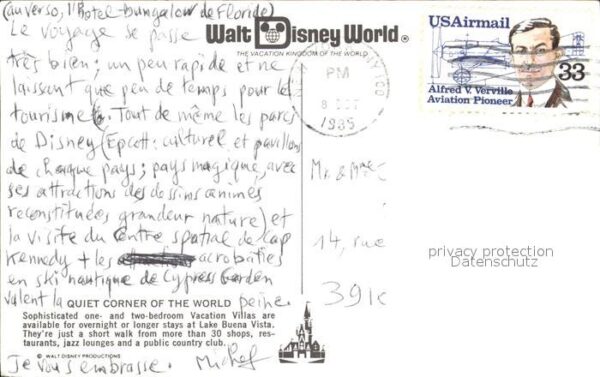 (au verso, l'hotel-bungalow de Floride)
Le voyage se passe
très bien; un peu rapide et ne
laissant que peu de temps pour le
tourisme. Tout de même les parcs
de Disney (Epcott: culturel et pavillons
de chaque pays; pays magique, avec
ses attractions des dessins animés
reconstituées grandeur nature) et
la visite du centre spatial de Cap
Kennedy + les acrobaties
en ski nautique de Cypress Garden
valent la peine.
Je vous embrasse. Michel
Walt Disney World®
THE VACATION KINGDOM OF THE WORLD
QUIET CORNER OF THE WORLD
Sophisticated one- and two-bedroom Vacation Villas are
available for overnight or longer stays at Lake Buena Vista.
They're just a short walk from more than 30 shops, res-
taurants, jazz lounges and a public country club.
© WALT DISNEY PRODUCTIONS
PM
8
1985
USAirmail
33
Alfred V. Verville
Aviation Pioneer
Mr & Mme
14, rue
privacy protection
Datenschutz
391